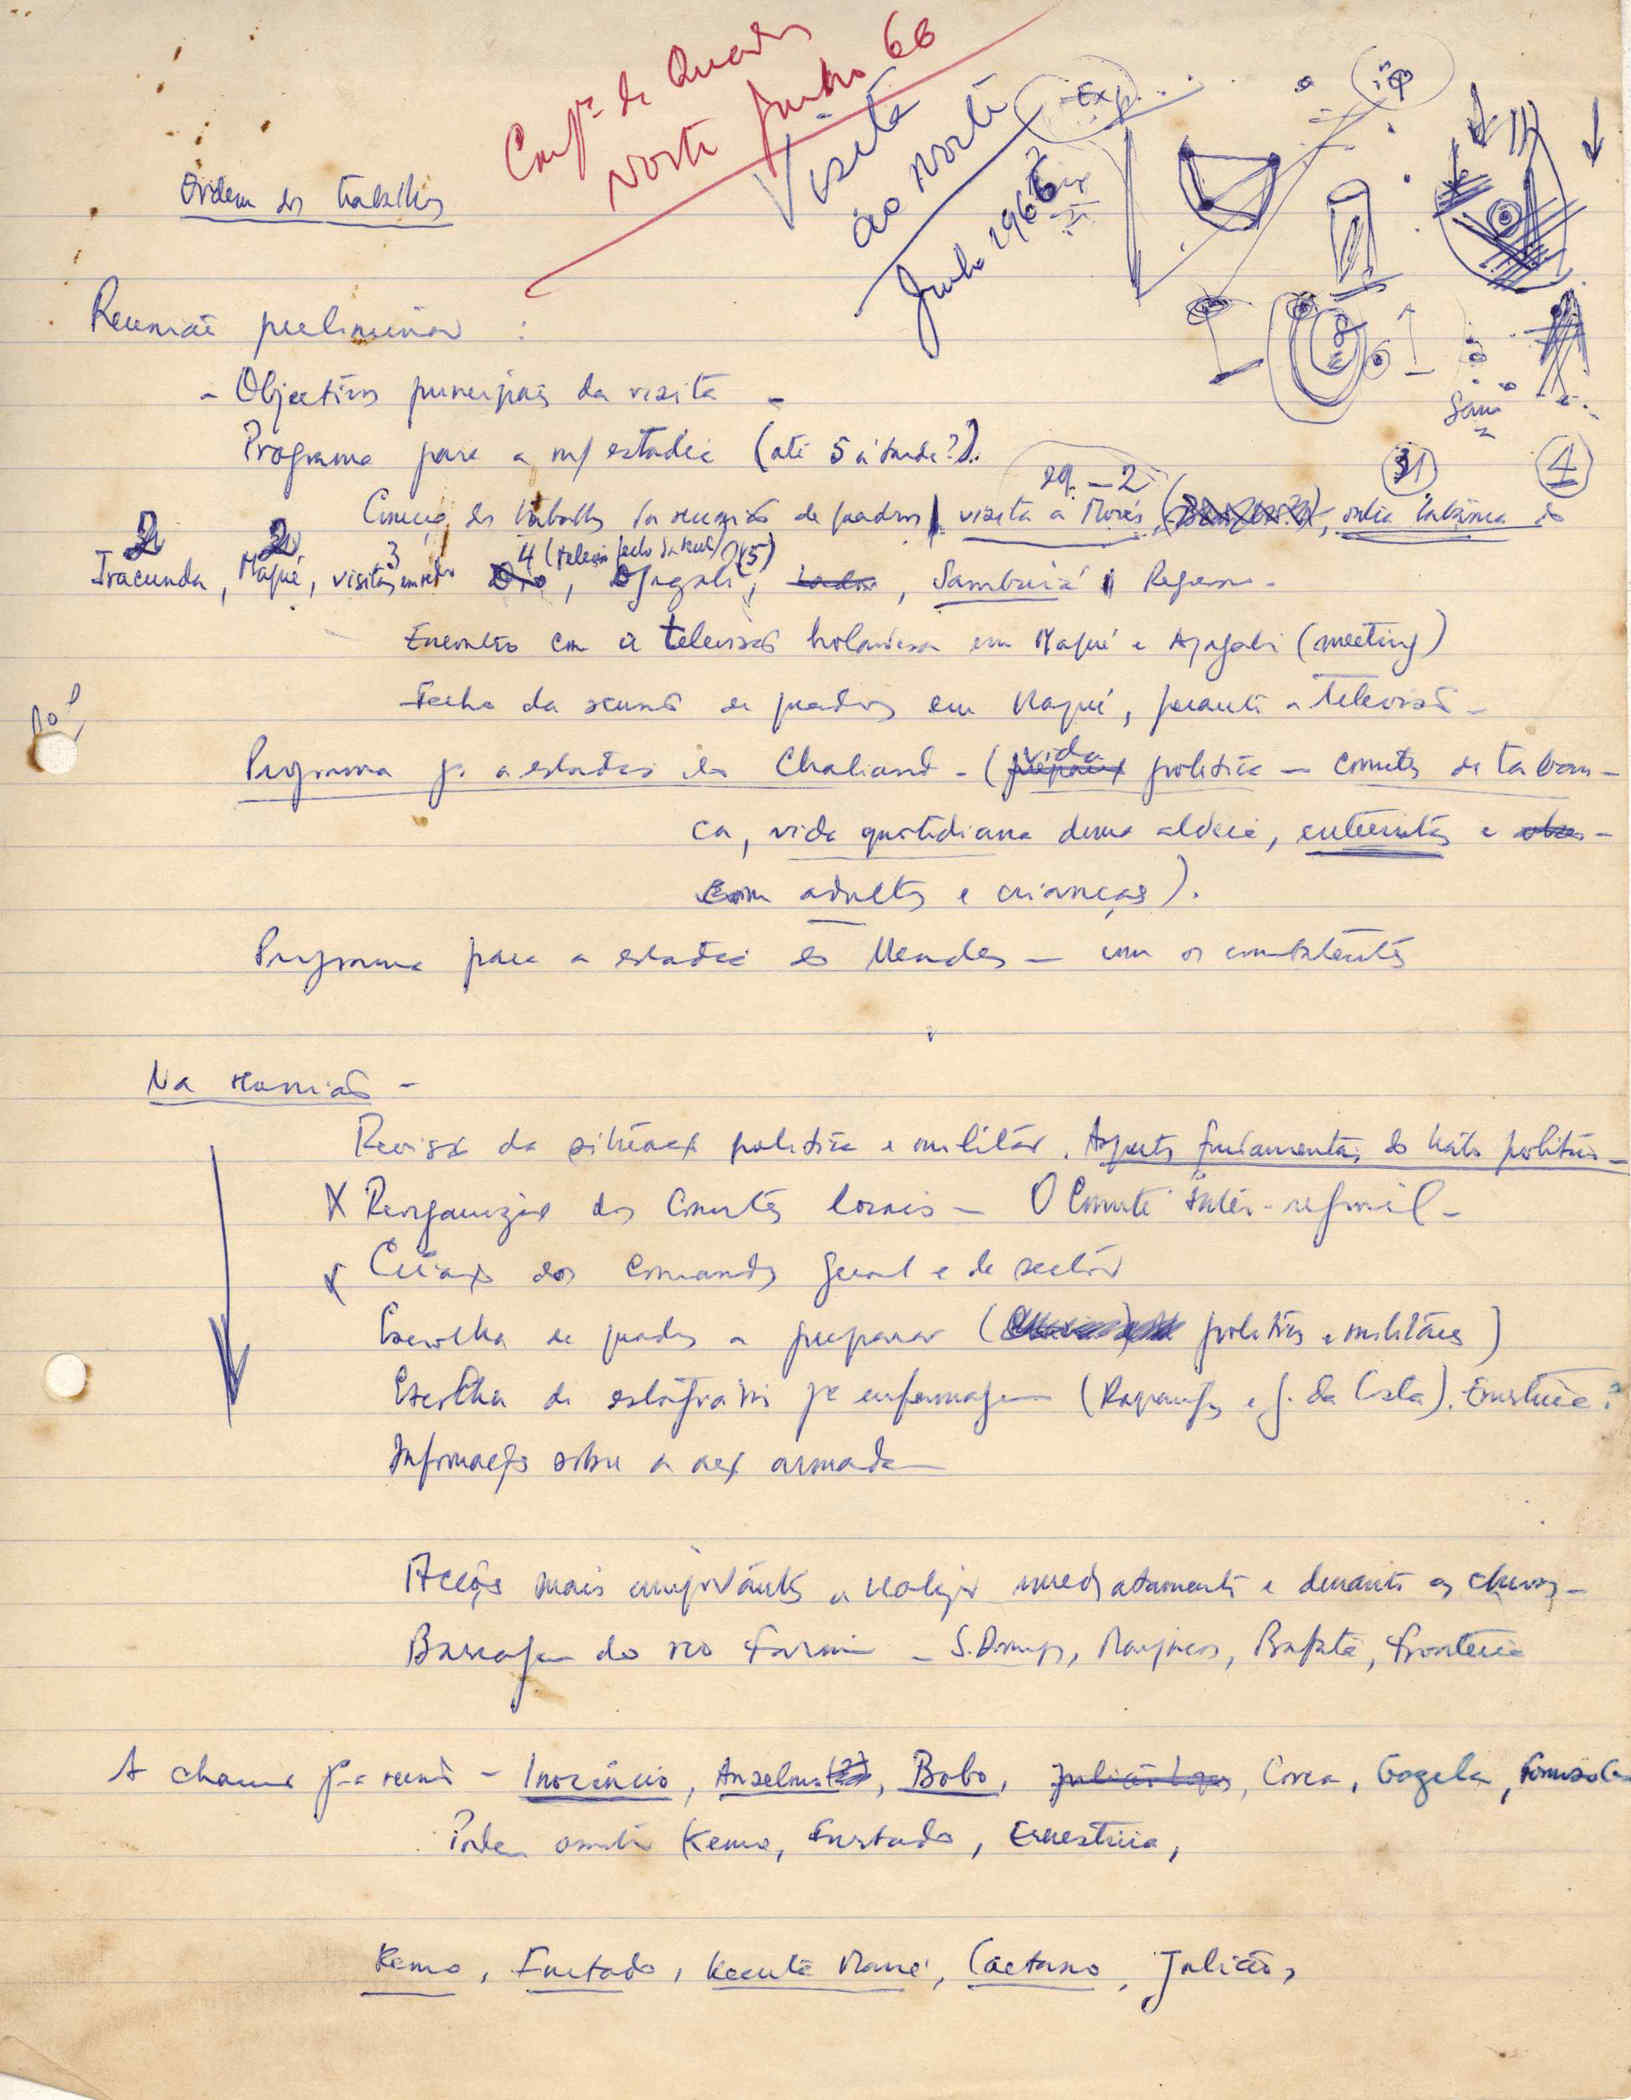 Confª de Quadros
Norte Junho 66
Visita
ao Norte
Junho 1966
Ordem dos trabalhos
Reunião preliminar :
- Objectivos principais da visita -
Programa para a m/ estadia (até 5 à tarde?).
29 - 2
31
4
Começo dos trabalhos da reunião de quadros, visita a Morés, outra tabanca do
2 2 3 4 (televisão fecho da reunião) (5)
Iracunda, Maqué, visitas, Djagali, Sambuiá, Regresso -
Encontro com a televisão holandesa em Maqué e Djagali (meeting)
Fecho da reunião de quadros em Maqué, perante a Televisão -
Programa pª a estadia do Chaliand - (vida política - comités de taban-
ca, vida quotidiana duma aldeia, entrevistas
com adultos e crianças).
Programa para a estadia do Mendes - com os combatentes
Na reunião -
Revisão da situação política e militar. Aspectos fundamentais do trabº político -
X Reorganização dos Comités locais - O Comité inter-regional -
x Criação dos Comandos geral e de sector
Escolha de quadros a preparar ( políticos e militares)
Escolha de estagiários pª enfermagem ( e J. da Costa). Ernestina?
Informações sobre a acção armada
Acções mais importantes a realizar imediatamente e durante as chuvas -
Barragem do rio Farim - S. Domingos, Bafatá, fronteira
A chamar pª a reunião - Inocêncio, Anselmo, Bobo, Julião Lopes, Corca, Gazela,
Podem assistir Kemo, Furtado, Ernestina,
Kemo, Furtado, Kecuta Mané, Caetano, Julião,